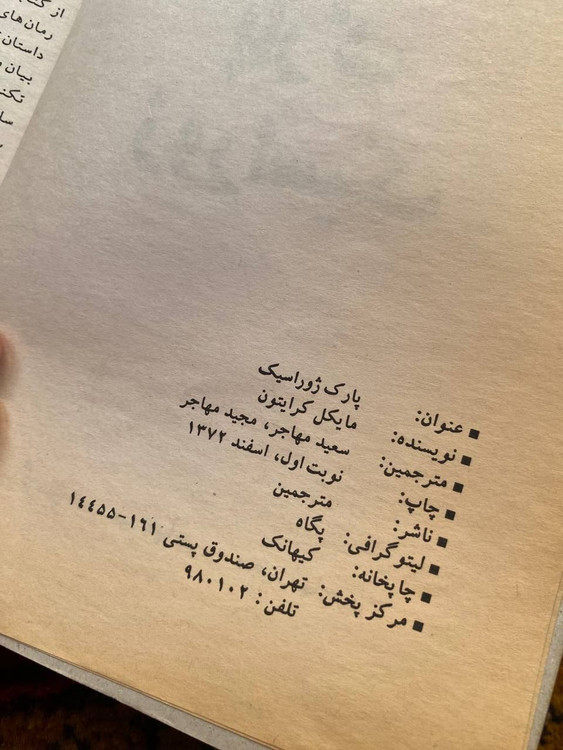 از کتا
رمان‌های
داستان
بیان
تکن
سا
■ عنوان: پارک ژوراسیک
■ نویسنده: مایکل کرایتون
■ مترجمین: سعید مهاجر، مجید مهاجر
■ چاپ: نوبت اول، اسفند ۱۳۷۲
■ ناشر: مترجمین
■ لیتوگرافی: پگاه
■ چاپخانه: کیهانک
■ مرکز پخش: تهران، صندوق پستی ۱۶۱-۱۴۴۵۵
تلفن: ۹۸۰۱۰۲